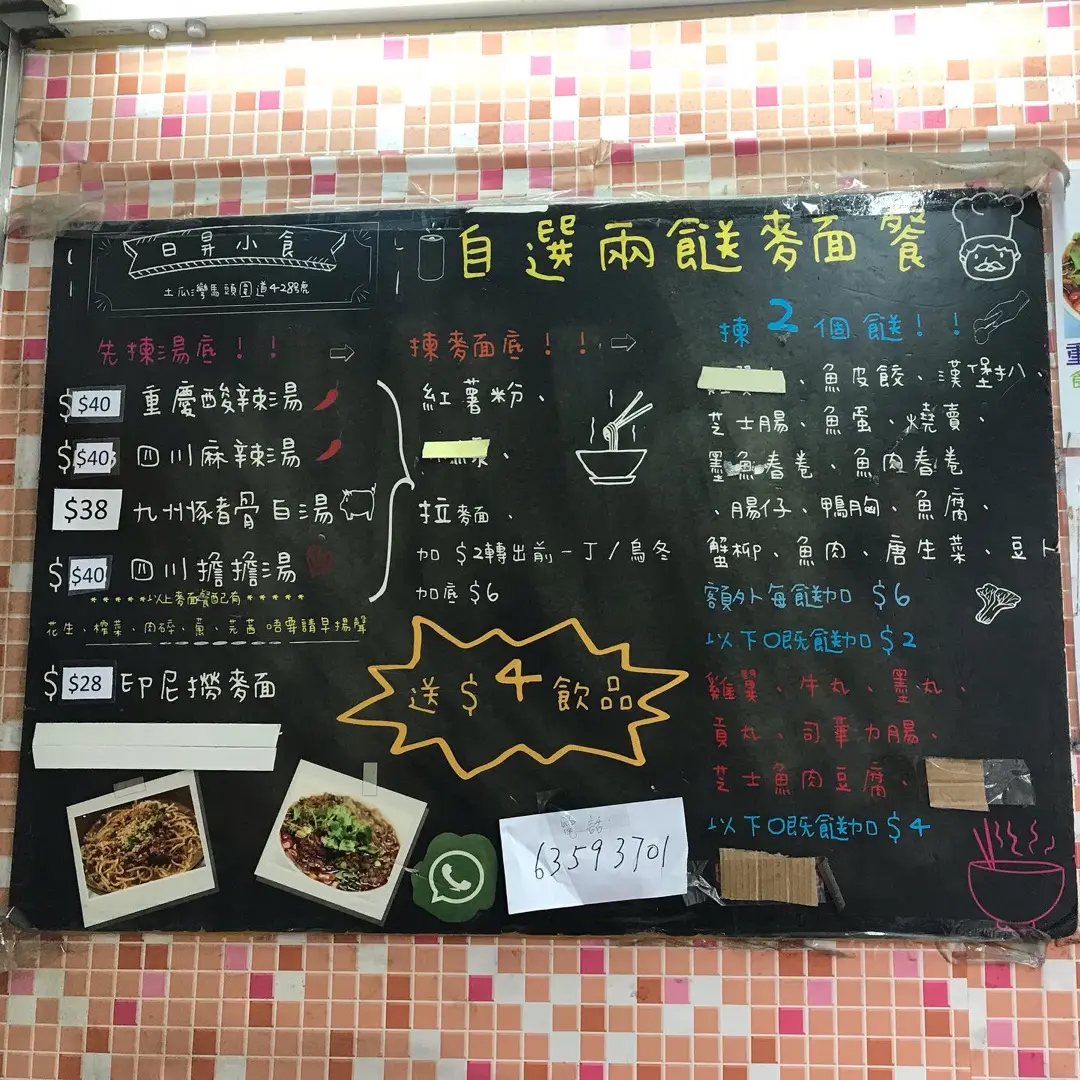 日昇小食
土瓜灣馬頭圍道428號
自選兩餸麥面餐
先揀湯底！！
$40 重慶酸辣湯
$40 四川麻辣湯
$38 九州豚骨白湯
$40 四川擔擔湯
*****以上麥面餐配有*****
花生、榨菜、肉碎、蔥、芫茜唔要請早揚聲
$28 印尼撈麥面
揀麥面底！！
紅薯粉、
拉麥面、
加$2轉出前一丁/烏冬
加底$6
送$4飲品
電話
63593701
揀2個餸！！
、魚皮餃、漢堡扒、
芝士腸、魚蛋、燒賣、
墨魚春卷、魚肉春卷
、腸仔、鴨胸、魚腐、
蟹柳、魚肉、唐生菜、豆卜
額外每餸加 $6
以下O既餸加$2
雞翼、牛丸、墨丸、
貢丸、司華力腸、
芝士魚肉豆腐、
以下O既餸加$4